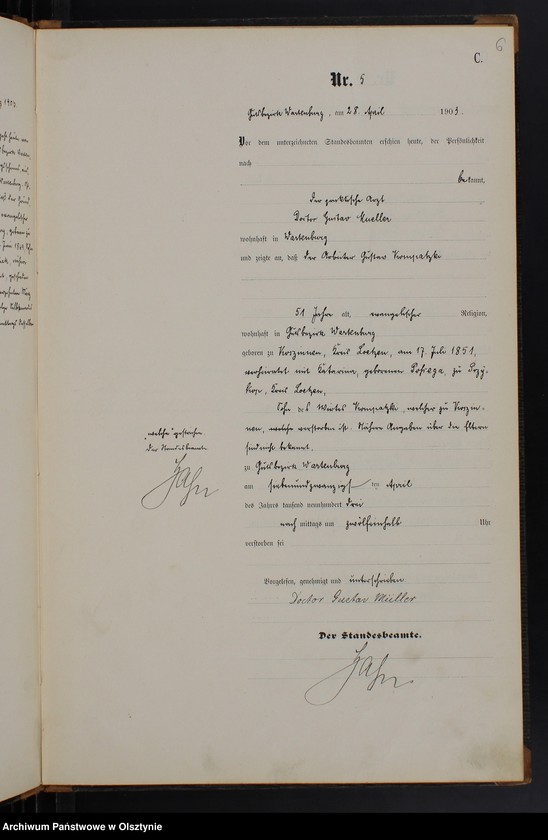 6
C.
Nr. 5
Gutsbezirk Wartenburg, am 28. April 1903.
Vor dem unterzeichneten Standesbeamten erschien heute, der Persönlichkeit
nach
bekannt,
der praktische Arzt
Doctor Gustav Mueller
wohnhaft in Wartenburg
und zeigte an, daß der Arbeiter Gustav
51 Jahre alt, evangelischer Religion,
wohnhaft in Gutsbezirk Wartenburg
geboren zu Kreis Loetzen, am 17. Juli 1851,
verheiratet mit Katarina, geborenen zu
Kreis Loetzen,
Sohn des Wirtes welcher zu
verstorben ist. Nähere Angaben über die Eltern
sind nicht bekannt,
zu Gutsbezirk Wartenburg
am siebenundzwanzigsten April
des Jahres tausend neunhundert drei
nach mittags um zwölfeinhalb Uhr
verstorben sei
"welche" gestrichen.
Der Standesbeamte.
Jahn
Vorgelesen, genehmigt und unterschrieben
Doctor Gustav Müller
Der Standesbeamte.
Jahn
Archiwum Państwowe w Olsztynie